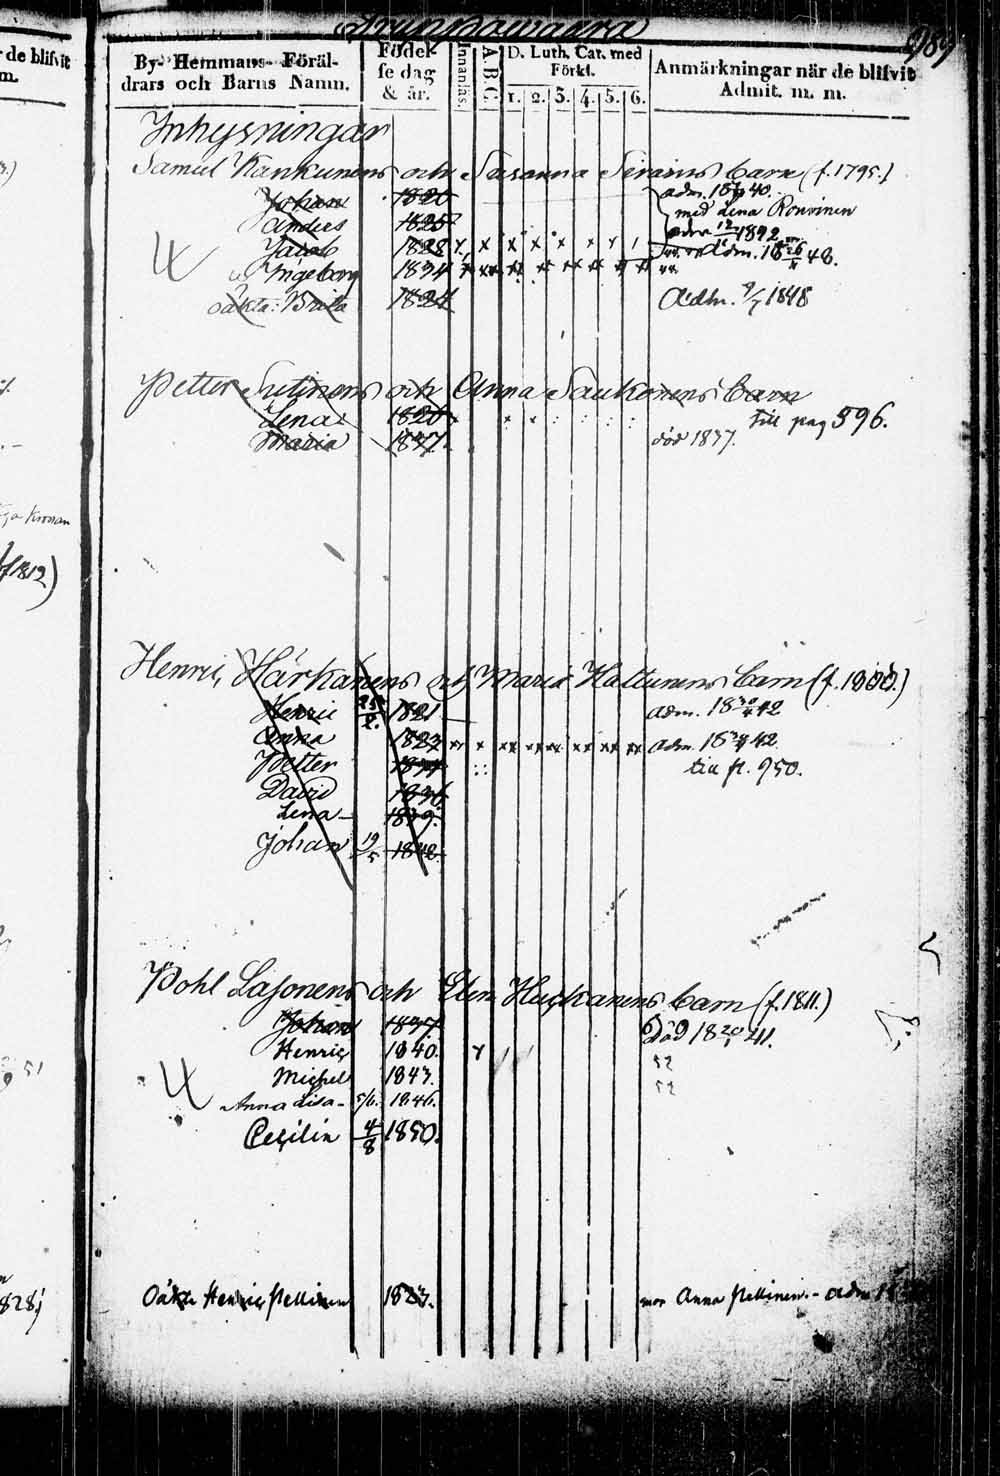 989
By- Hemmans- Föräldrars och Barns Namn.
Födelse dag & år.
Innanläs.
A.B.C.
D. Luth. Cat. med Förkl.
1. 2. 3. 4. 5. 6.
Anmärkningar när de blifvit Admit. m. m.
de blifvit
m.
Inhysningar
Samuel Kankunens och Susanna Sirains barn (f. 1795.)
Johan 1820 adm. 40.
med Lena Ronninen
Andies 1825
Jacob 1828 Adm. 48.
Ingeborg 1834
oäkta: Brita 1824 Adm. 1848
Petter Sutinens och Anna Saukonens barn
Lena 1820 till pag 596.
Maria 1837. död 1837.
Kronan
1812)
Henric Härkänens och Maria Hattunens barn (f. 1800.)
Henric 25/2. 1821 adm. 42
Anna 1823 adm. 42.
Petter till p. 950.
David 1836
Lena 1839.
Johan 19/5 1842
Pohl Lasonens och Elin Huskanens barn (f. 1811.)
Johan 1837 Död 18 20/1 41.
Henric 1840.
Michel 1843.
Anna Lisa 5/6. 1846.
Cecilia 4/8 1850.
51
828)
Oäkta Henric Pellinen 1823. mor Anna Pellinen. - adm